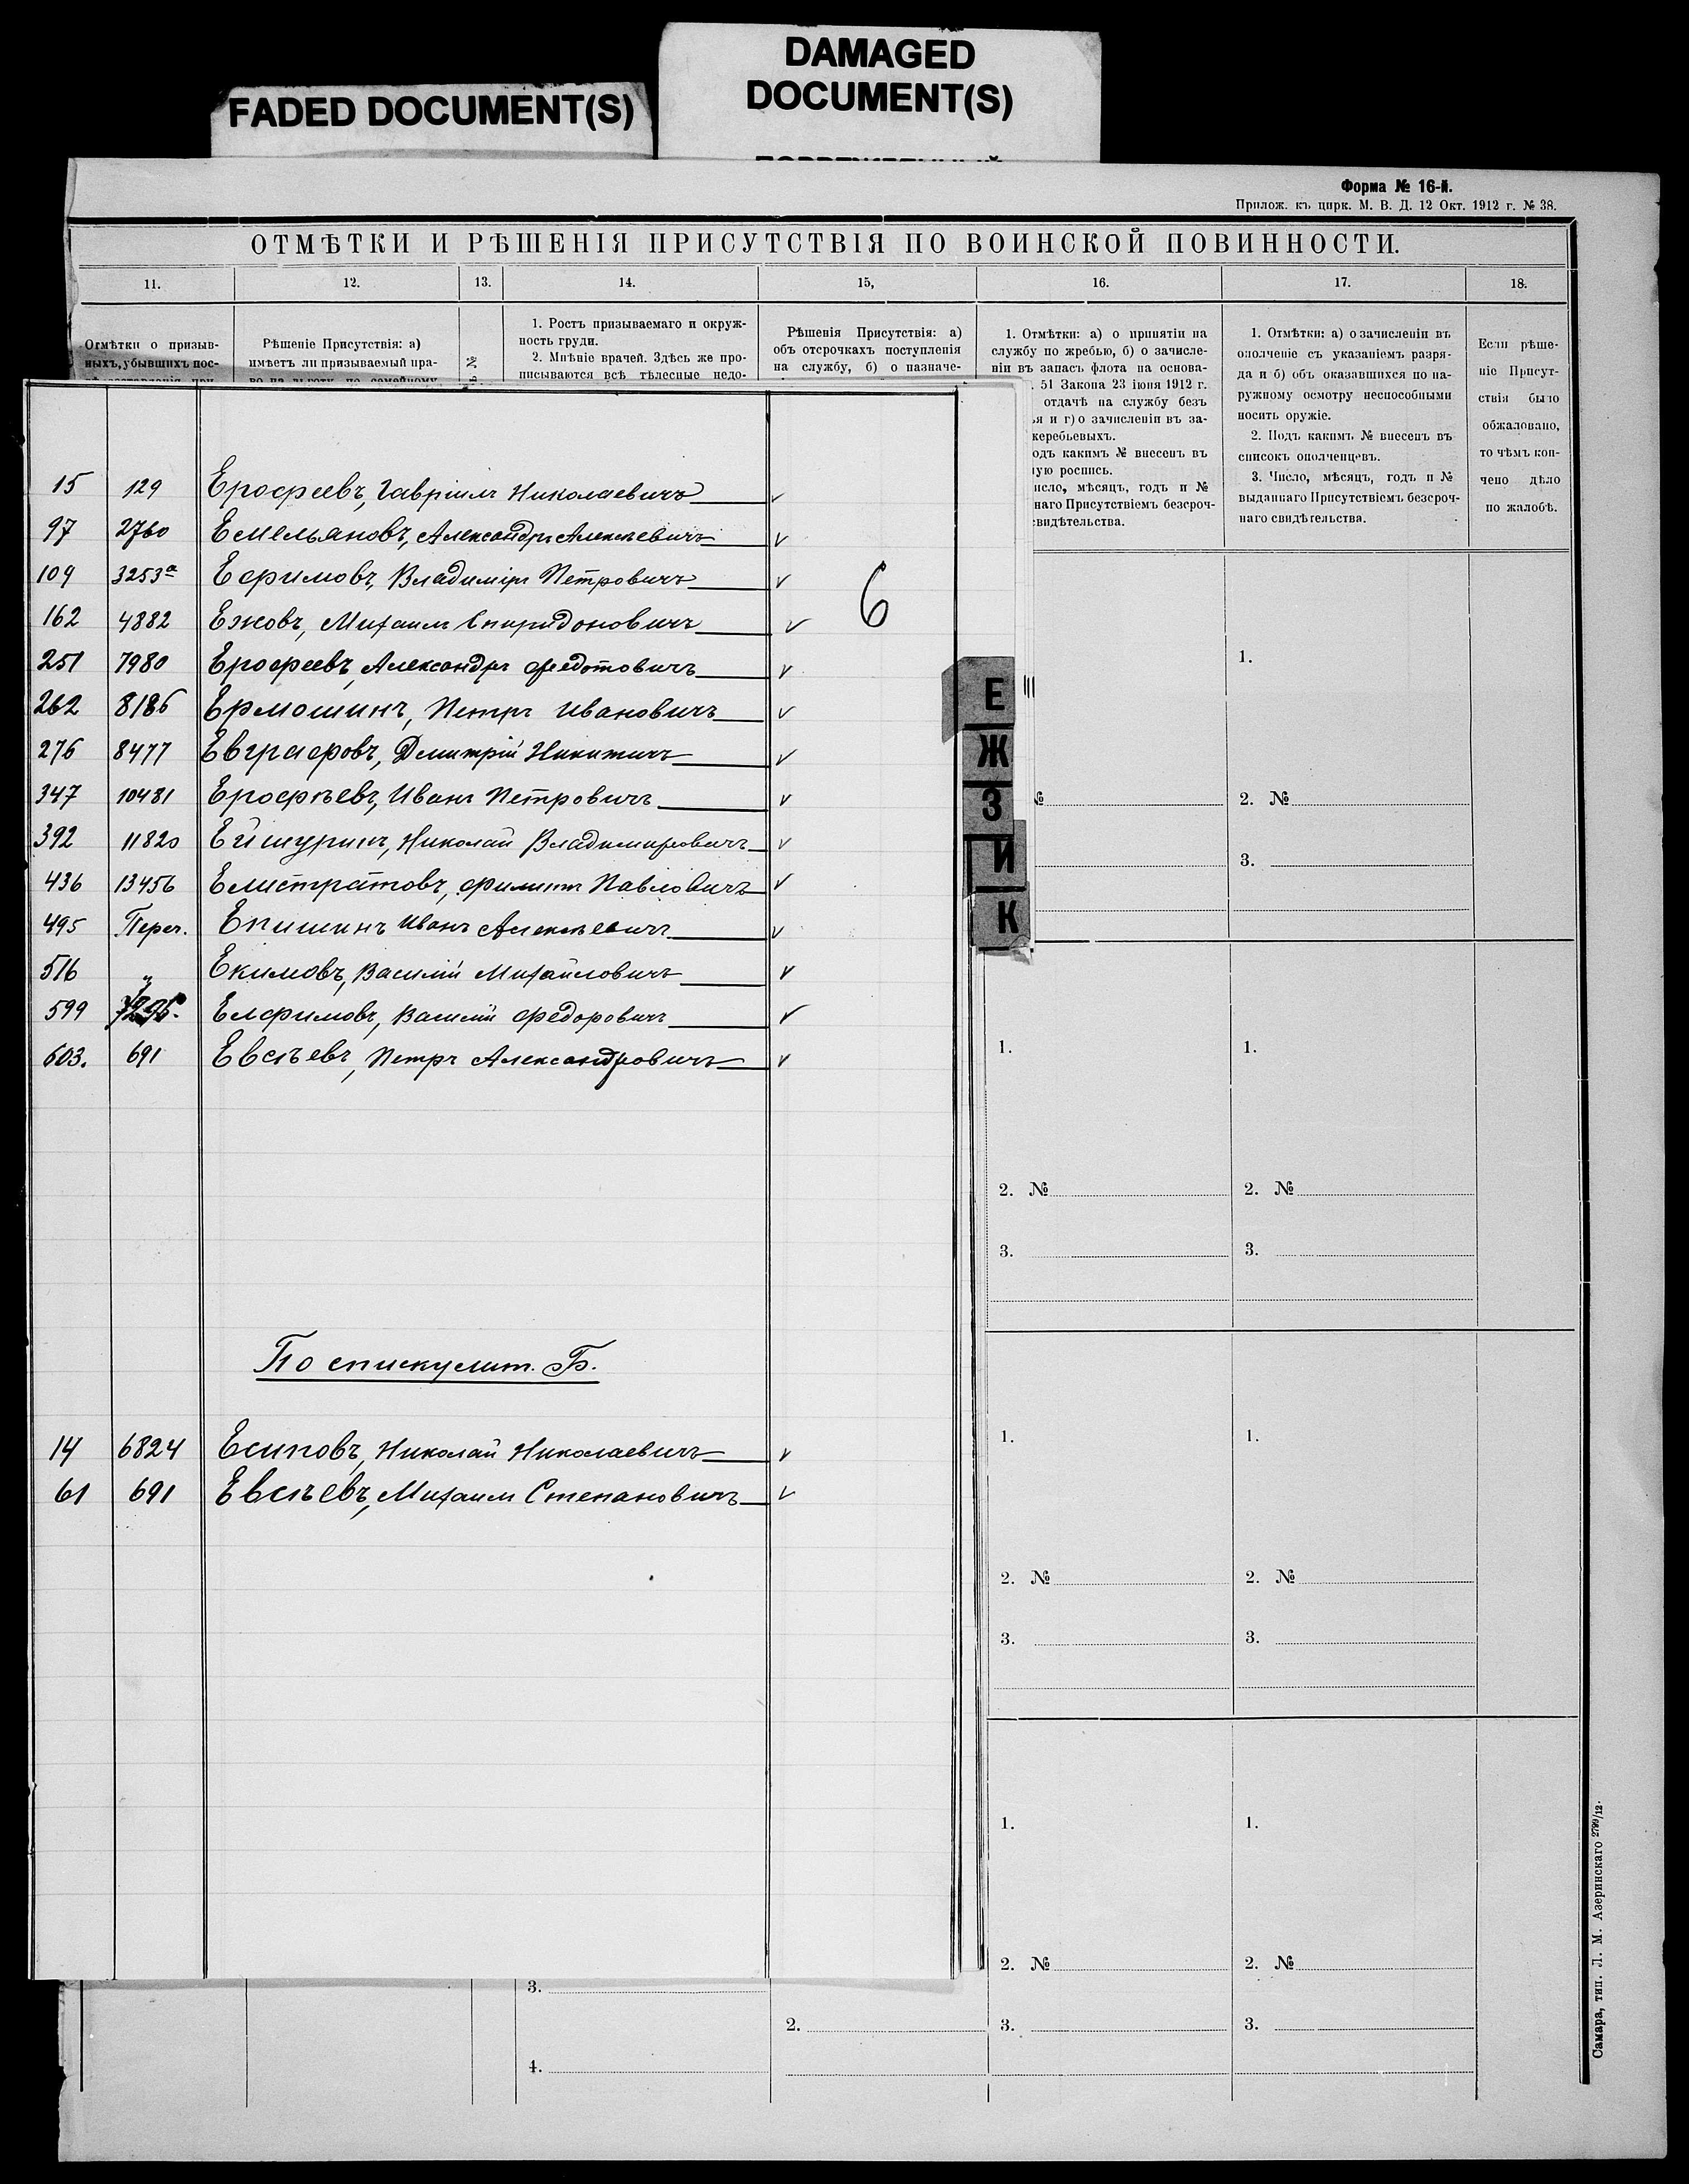 FADED DOCUMENT(S)
DAMAGED
DOCUMENT(S)
Форма № 16-й.
Прилож. къ цирк. М. В. Д. 12 Окт. 1912 г. № 38.
ОТМѢТКИ И РѢШЕНІЯ ПРИСУТСТВІЯ ПО ВОИНСКОЙ ПОВИННОСТИ.
11. 12. 13. 14. 15, 16. 17. 18.
Отмѣтки о призыв-
ныхъ, убывшихъ пос-
Рѣшеніе Присутствія: а)
имѣетъ ли призываемый пра-
во на льготу по семейному
№
1. Ростъ призываемаго и окруж-
ность груди.
2. Мнѣніе врачей. Здѣсь же про-
писываются всѣ тѣлесные недо-
Рѣшенія Присутствія: а)
объ отсрочкахъ поступленія
на службу, б) о назначе-
1. Отмѣтки: а) о принятіи на
службу по жребью, б) о зачисле-
ніи въ запасъ флота на основа-
51 Закона 23 іюня 1912 г.
отдачѣ на службу безъ
я и г) о зачисленіи въ за-
жеребьевыхъ.
одъ какимъ № внесенъ въ
ную роспись.
исло, мѣсяцъ, годъ и №
наго Присутствіемъ безсроч-
свидѣтельства.
1. Отмѣтки: а) о зачисленіи въ
ополченіе съ указаніемъ разря-
да и б) объ оказавшихся по на-
ружному осмотру неспособными
носить оружіе.
2. Подъ какимъ № внесенъ въ
списокъ ополченцевъ.
3. Число, мѣсяцъ, годъ и №
выданнаго Присутствіемъ безсроч-
наго свидѣтельства.
Если рѣше-
ніе Присут-
ствія было
обжаловано,
то чѣмъ кон-
чено дѣло
по жалобѣ.
15 129 Ерофеевъ, Гавріилъ Николаевичъ
97 2760 Емельяновъ, Александръ Алексѣевичъ
109 3253а Ефимовъ, Владиміръ Петровичъ
162 4882 Ежовъ, Михаилъ Спиридоновичъ
6
251 7980 Ерофеевъ, Александръ Федотовичъ
262 8186 Ермошинъ, Петръ Ивановичъ
276 8477 Евграфовъ, Дмитрій Никитичъ
347 10481 Ерофѣевъ, Иванъ Петровичъ
392 11820 Ейшуринъ, Николай Владимировичъ
436 13456 Елистратовъ, Филиппъ Павловичъ
495 Переч. Епишинъ Иванъ Алексѣевичъ
516 " Екимовъ, Василій Михайловичъ
599 Елфимовъ, Василій Федоровичъ
603. 691 Евсѣевъ, Петръ Александровичъ
По списку лит. Б.
14 6824 Есиповъ, Николай Николаевичъ
61 691 Евсѣевъ, Михаилъ Степановичъ
Е
Ж
З
И
К
1.
№ 2. №
3.
1. 1.
2. № 2. №
3. 3.
1. 1.
2. № 2. №
3. 3.
1. 1.
2. № 2. №
3.
2. 3. 3.
4.
Самара, тип. Л. М. Азеринскаго 2799/12.